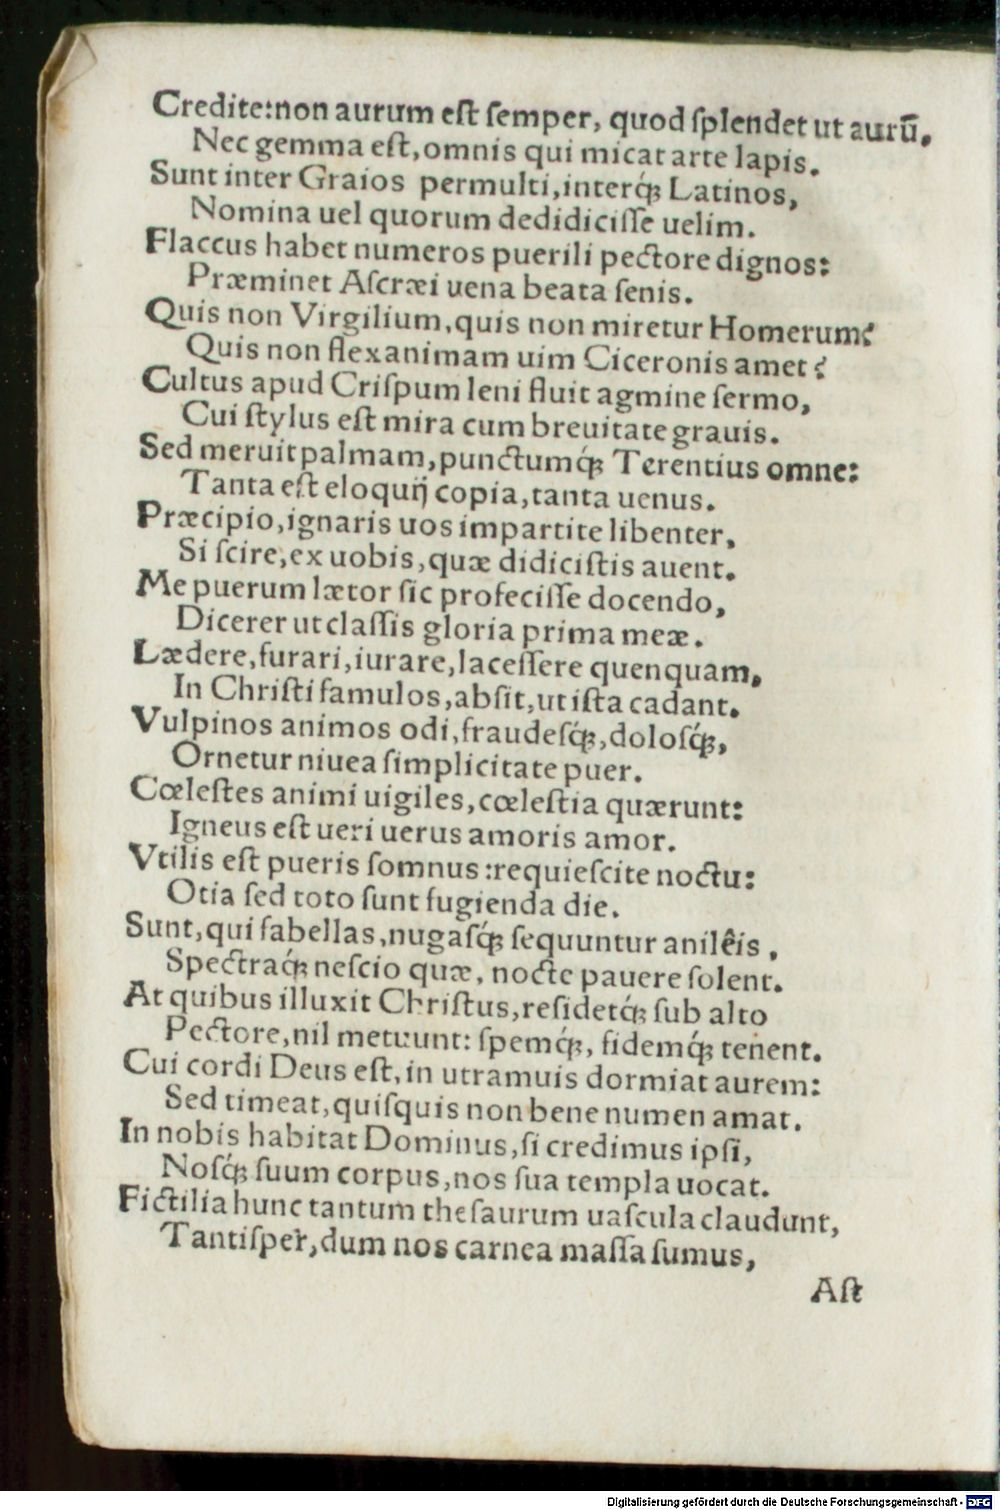 Credite:non aurum eſt ſemper, quod ſplendet ut aurū.
Nec gemma eſt,omnis qui micat arte lapis.
Sunt inter Graios permulti,interq́; Latinos,
Nomina uel quorum dedidiciſſe uelim.
Flaccus habet numeros puerili pectore dignos:
Præminet Aſcræi uena beata ſenis.
Quis non Virgilium,quis non miretur Homerum?
Quis non flexanimam uim Ciceronis amet?
Cultus apud Criſpum leni fluit agmine ſermo,
Cui ſtylus eſt mira cum breuitate grauis.
Sed meruit palmam,punctumq́; Terentius omne:
Tanta eſt eloquij copia,tanta uenus.
Præcipio,ignaris uos impartite libenter,
Si ſcire,ex uobis,quæ didiciſtis auent.
Me puerum lætor ſic profeciſſe docendo,
Dicerer ut claſſis gloria prima meæ.
Lædere,furari,iurare,laceſſere quenquam,
In Chriſti famulos,abſit,ut iſta cadant.
Vulpinos animos odi,fraudeſq́;,doloſq́;,
Ornetur niuea ſimplicitate puer.
Cœleſtes animi uigiles,cœleſtia quærunt:
Igneus eſt ueri uerus amoris amor.
Vtilis eſt pueris ſomnus:requieſcite noctu:
Otia ſed toto ſunt fugienda die.
Sunt,qui fabellas,nugaſq́; ſequuntur anilêis,
Spectraq́; neſcio quæ, nocte pauere ſolent.
At quibus illuxit Chriſtus,reſidetq́; ſub alto
Pectore,nil metuunt: ſpemq́;, fidemq́; tenent.
Cui cordi Deus eſt,in utramuis dormiat aurem:
Sed timeat,quiſquis non bene numen amat.
In nobis habitat Dominus,ſi credimus ipſi,
Noſq́; ſuum corpus,nos ſua templa uocat.
Fictilia hunc tantum theſaurum uaſcula claudunt,
Tantiſper,dum nos carnea maſſa ſumus,
Aſt
Digitalisierung gefördert durch die Deutsche Forschungsgemeinschaft - DFG